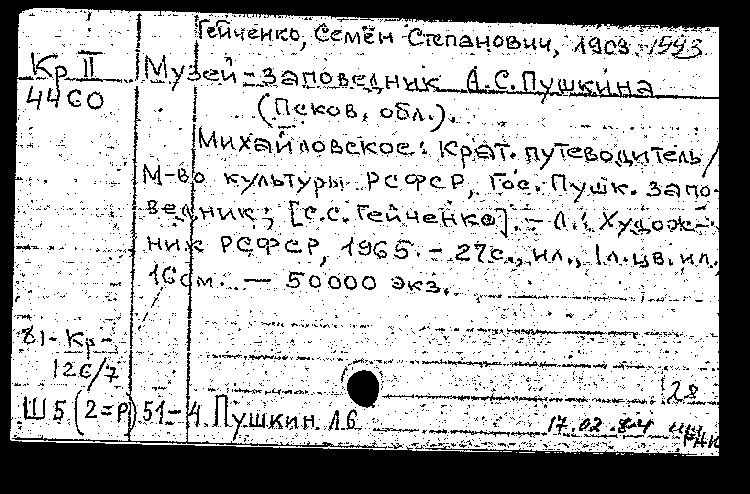 Гейченко, Семён Степанович, 1903-1993
Кр II Музей-заповедник А.С.Пушкина
4460 (Псков. обл.).
Михайловское: Крат. путеводитель /
М-во культуры РСФСР, Гос. Пушк. запо-
ведник; [С.С. Гейченко]. - Л.: Худож-
ник РСФСР, 1965. - 27с., ил., 1л.цв.ил.
16см. — 50000 экз.
81-Кр-
126/7
28
Ш5(2=Р)51-4 Пушкин Л6
17.02.84